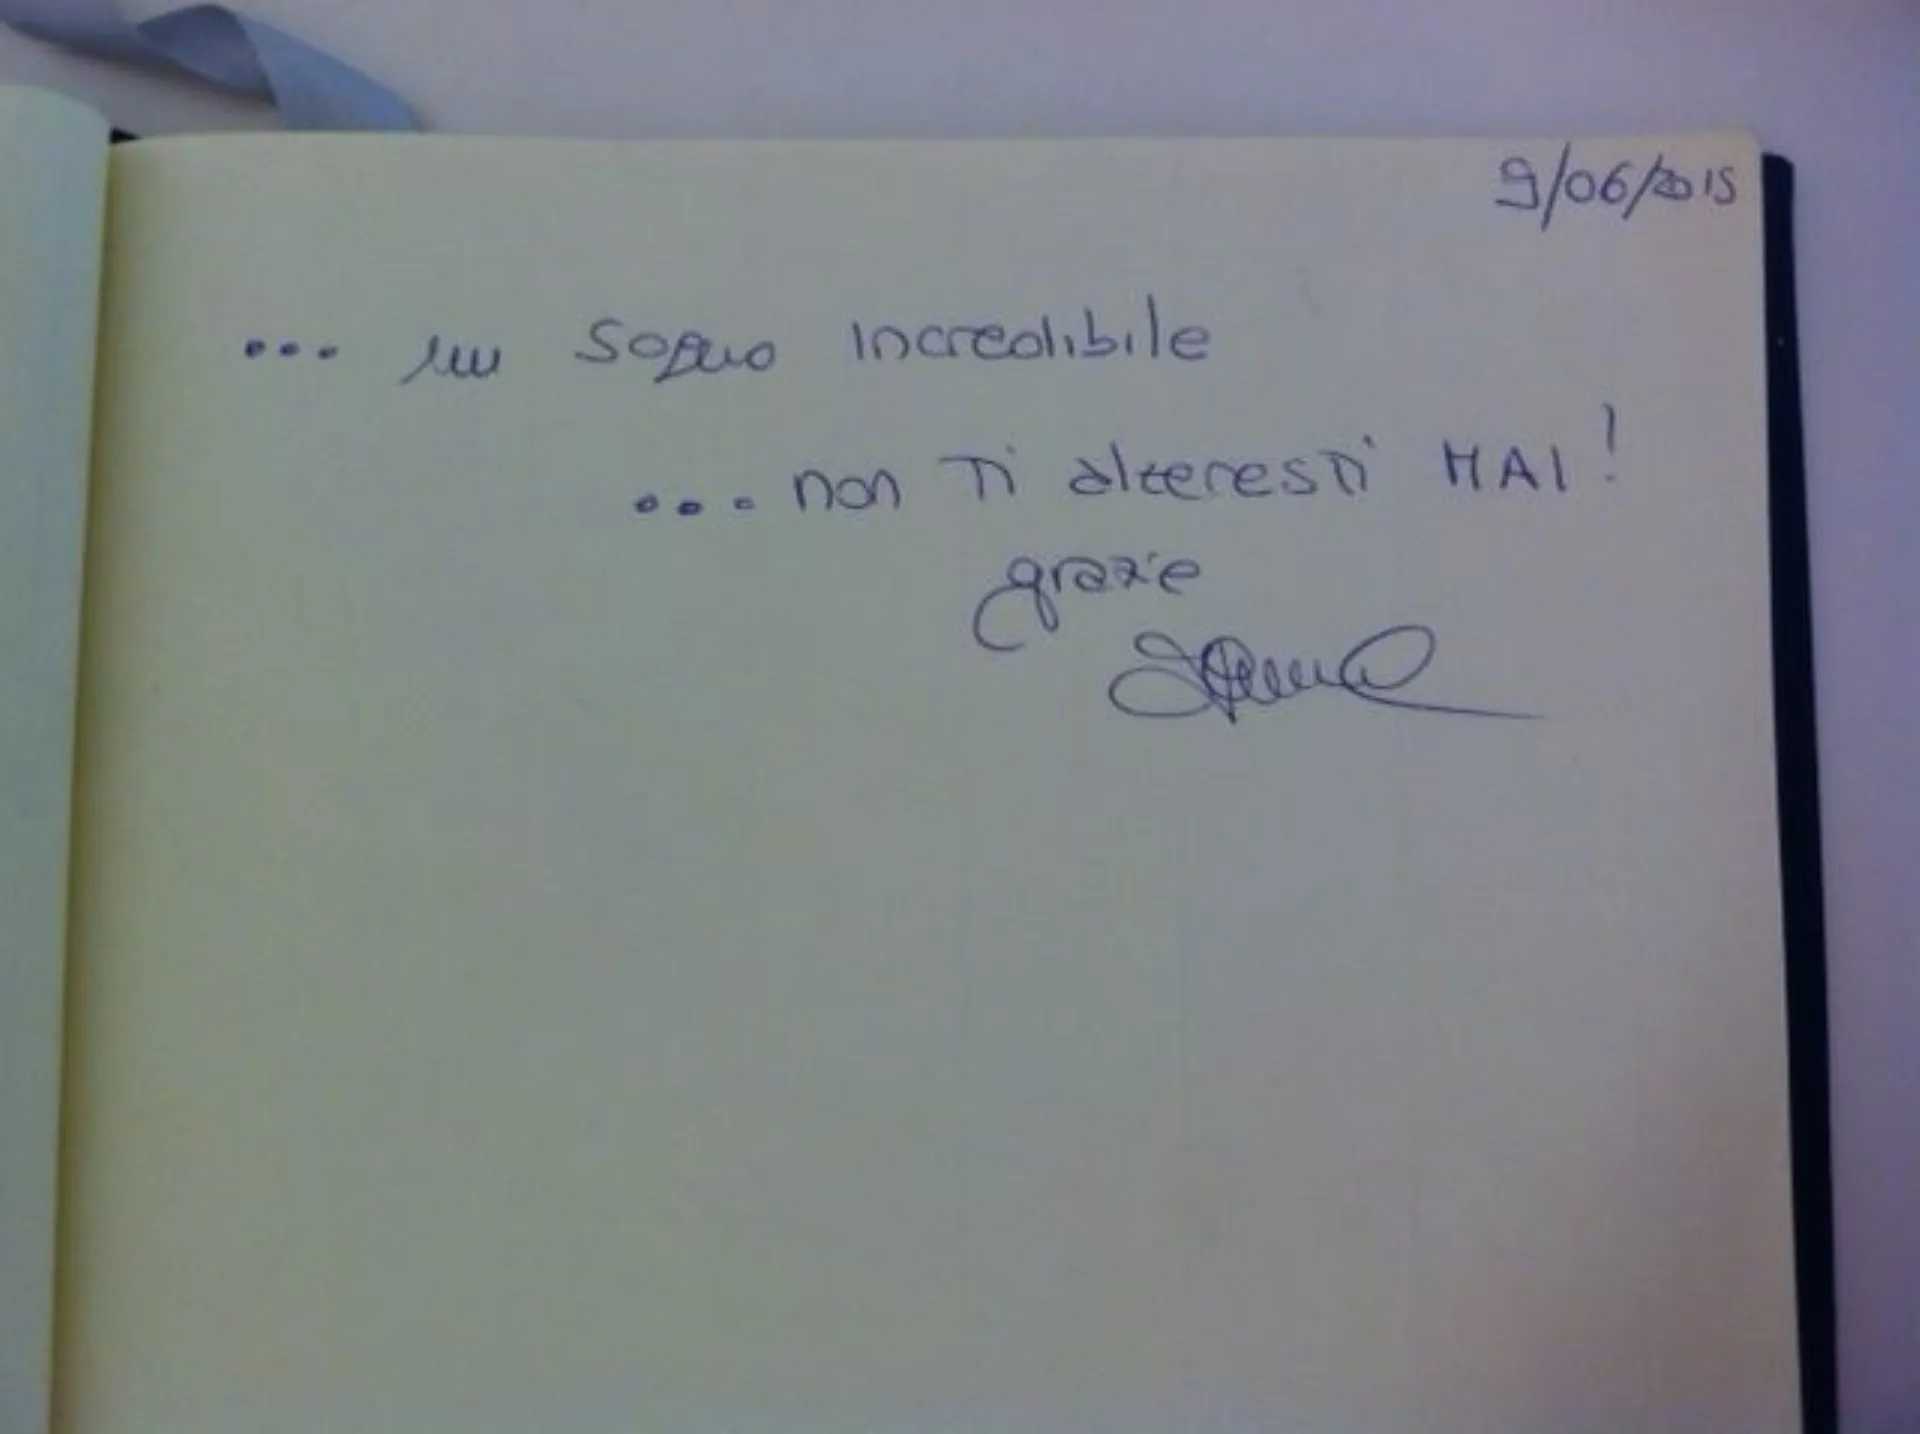 9/06/2015
... un sogno incredibile
... non ti alzeresti MAI!
grazie